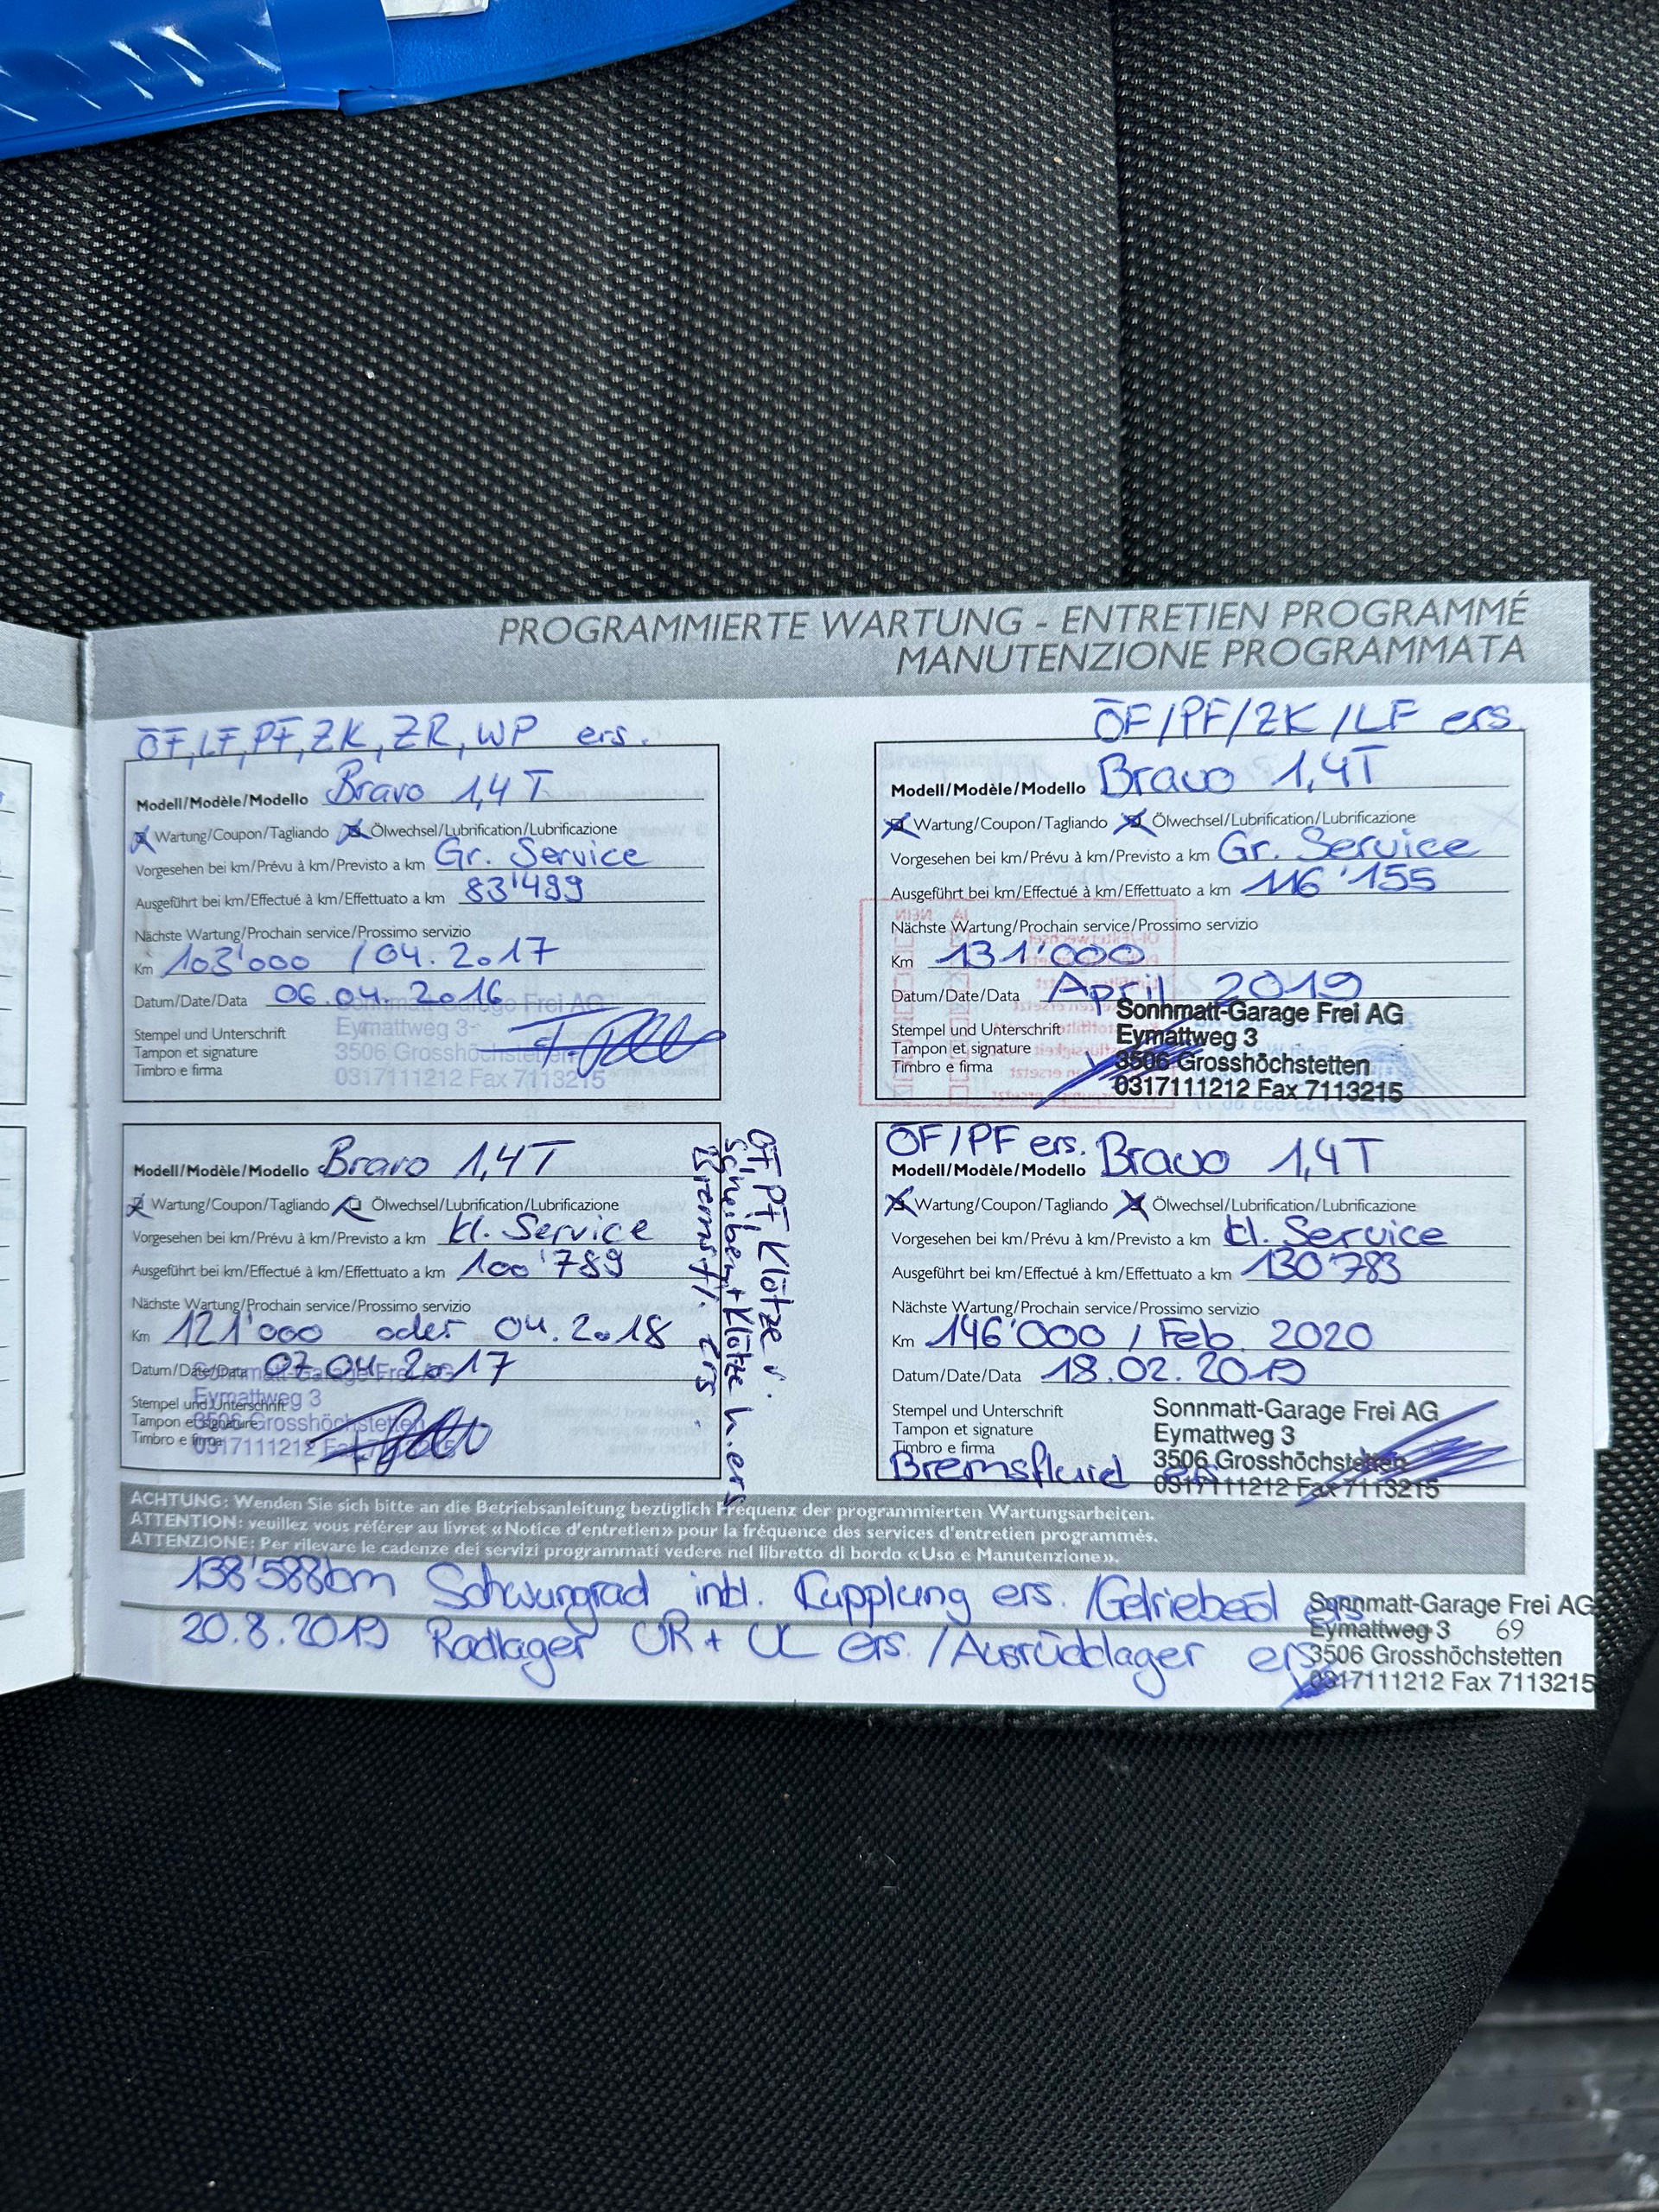 PROGRAMMIERTE WARTUNG - ENTRETIEN PROGRAMMÉ
MANUTENZIONE PROGRAMMATA
ÖF, LF, PF, ZK, ZR, WP ers.
Modell/Modèle/Modello Bravo 1,4 T
Wartung/Coupon/Tagliando Ölwechsel/Lubrification/Lubrificazione
Vorgesehen bei km/Prévu à km/Previsto a km Gr. Service
Ausgeführt bei km/Effectué à km/Effettuato a km 83'499
Nächste Wartung/Prochain service/Prossimo servizio
Km 103'000 / 04. 2017
Datum/Date/Data 06.04. 2016
Stempel und Unterschrift
Tampon et signature
Timbro e firma
Sonnmatt-Garage Frei AG
Eymattweg 3
3506 Grosshöchstetten
0317111212 Fax 7113215
ÖF/PF/ZK/LF ers.
Modell/Modèle/Modello Bravo 1,4T
Wartung/Coupon/Tagliando Ölwechsel/Lubrification/Lubrificazione
Vorgesehen bei km/Prévu à km/Previsto a km Gr. Service
Ausgeführt bei km/Effectué à km/Effettuato a km 116'155
Nächste Wartung/Prochain service/Prossimo servizio
Km 131'000
Datum/Date/Data April 2019
Stempel und Unterschrift
Tampon et signature
Timbro e firma
Sonnmatt-Garage Frei AG
Eymattweg 3
3506 Grosshöchstetten
0317111212 Fax 7113215
Modell/Modèle/Modello Bravo 1,4T
Wartung/Coupon/Tagliando Ölwechsel/Lubrification/Lubrificazione
Vorgesehen bei km/Prévu à km/Previsto a km kl. Service
Ausgeführt bei km/Effectué à km/Effettuato a km 100'789
Nächste Wartung/Prochain service/Prossimo servizio
Km 121'000 oder 04.2018
Datum/Date/Data 07.04.2017
Stempel und Unterschrift
Tampon et signature
Timbro e firma
Sonnmatt-Garage Frei AG
Eymattweg 3
3506 Grosshöchstetten
0317111212 Fax 7113215
ÖF, PF, Klötze v.
Scheiben + Klötze h. ers
Bremsfl. ers
ÖF/PF ers.
Modell/Modèle/Modello Bravo 1,4T
Wartung/Coupon/Tagliando Ölwechsel/Lubrification/Lubrificazione
Vorgesehen bei km/Prévu à km/Previsto a km kl. Service
Ausgeführt bei km/Effectué à km/Effettuato a km 130'783
Nächste Wartung/Prochain service/Prossimo servizio
Km 146'000 / Feb. 2020
Datum/Date/Data 18.02.2019
Stempel und Unterschrift
Tampon et signature
Timbro e firma
Bremsfluid ers
Sonnmatt-Garage Frei AG
Eymattweg 3
3506 Grosshöchstetten
0317111212 Fax 7113215
ACHTUNG: Wenden Sie sich bitte an die Betriebsanleitung bezüglich Frequenz der programmierten Wartungsarbeiten.
ATTENTION: veuillez vous référer au livret «Notice d'entretien» pour la fréquence des services d'entretien programmés.
ATTENZIONE: Per rilevare le cadenze dei servizi programmati vedere nel libretto di bordo «Uso e Manutenzione».
138'588km Schwungrad inkl. Kupplung ers. /Getriebeöl ers
20.8.2019 Radlager UR + UL ers. / Ausrücklager ers
Sonnmatt-Garage Frei AG
Eymattweg 3
3506 Grosshöchstetten
0317111212 Fax 7113215
69